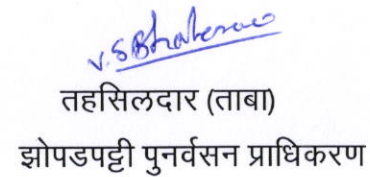 V.SBhalerao
तहसिलदार (ताबा)
झोपडपट्टी पुनर्वसन प्राधिकरण